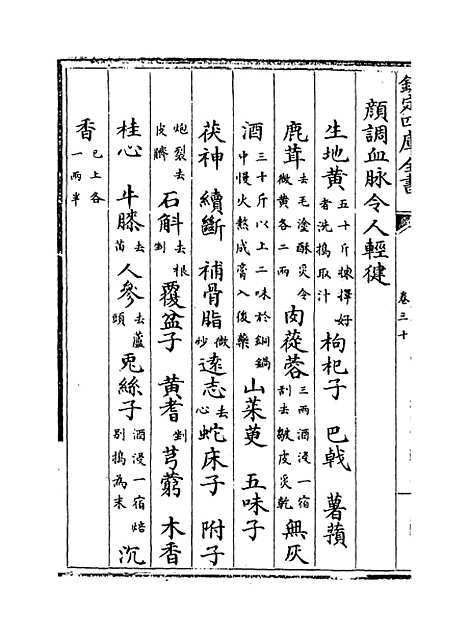 欽定四庫全書
卷三十
顔調血脉令人輕健
生地黄五十斤揀擇好者洗搗取汁 枸杞子 巴戟 薯蕷
鹿茸去毛塗酥炙令微黄各二兩 肉蓯蓉三兩酒浸一宿刮去皺皮炙乾 無灰
酒三十斤以上二味於銅鍋中慢火熬成膏入後藥 山茱萸 五味子
茯神 續斷 補骨脂微炒 遠志去心 蛇床子 附子
炮裂去皮臍 石斛去根剉 覆盆子 黄耆剉 芎藭 木香
桂心 牛膝去苗 人參去蘆頭 兎絲子酒浸一宿焙别搗為末 沉
香已上各一兩半